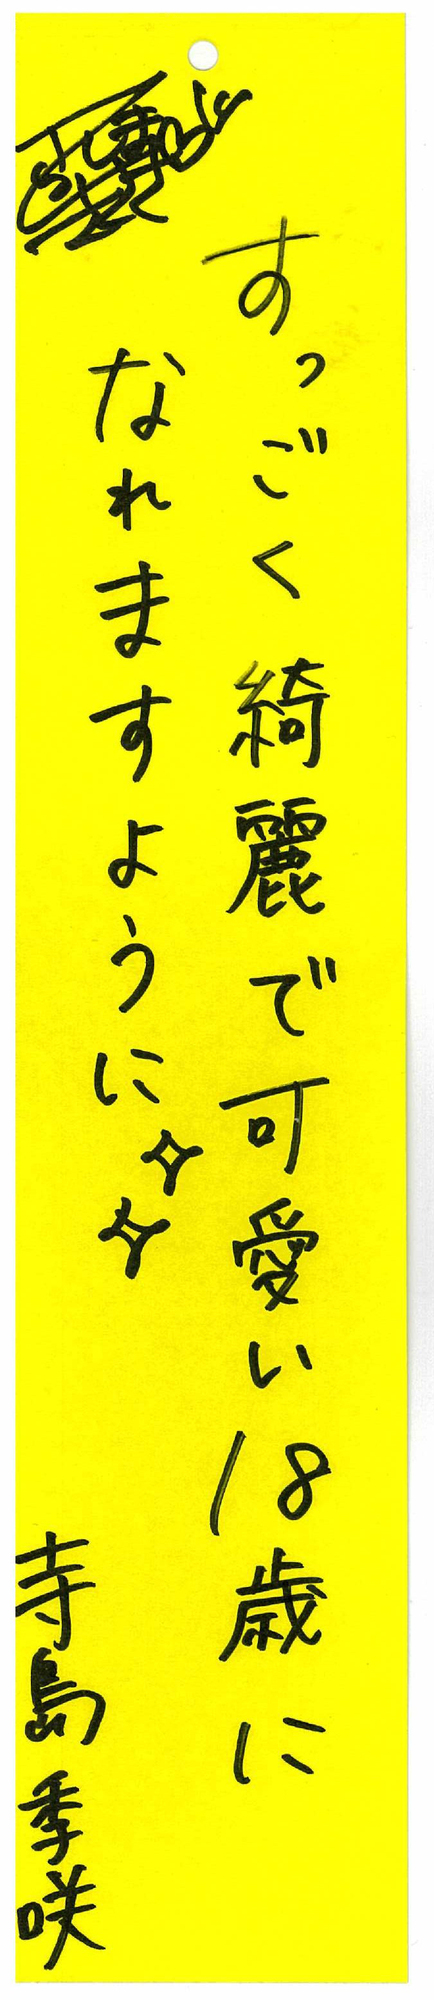 すっごく綺麗で可愛い18歳に
なれますように
寺島季咲